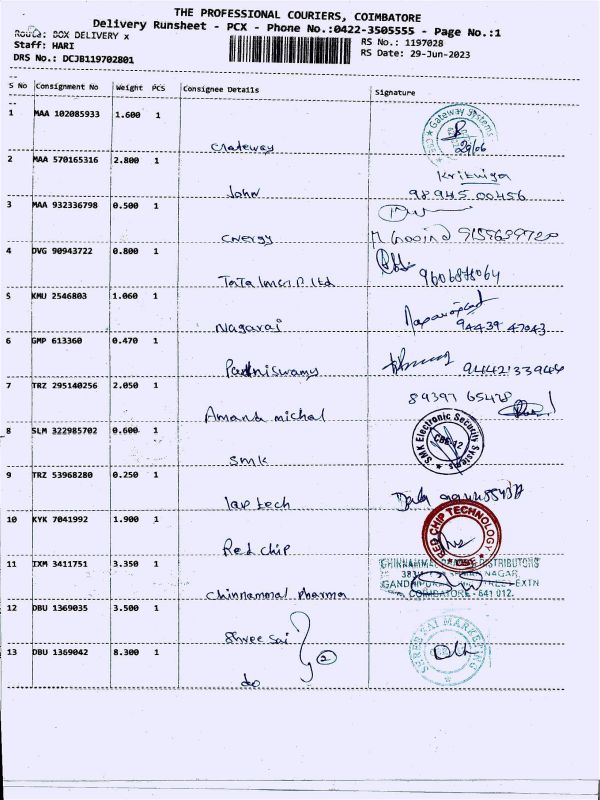 THE PROFESSIONAL COURIERS, COIMBATORE
Delivery Runsheet - PCX - Phone No.:0422-3505555 - Page No.:1
Route: BOX DELIVERY x
Staff: HARI
DRS No.: DCJB119702801
RS No.: 1197028
RS Date: 29-Jun-2023
S No Consignment No Weight PCS Consignee Details Signature
1 MAA 102085933 1.600 1
Gateway
Gateway Systems
29/06
2 MAA 570165316 2.800 1
John
Krithiga
98945 00456
3 MAA 932336798 0.500 1
energy
4 DVG 90943722 0.800 1
Ltd
5 KMU 2546803 1.060 1
Nagaraj
94439 47043
6 GMP 613360 0.470 1
Palaniswamy
7 TRZ 295140256 2.050 1
Amanda michal
89397 65478
8 SLM 322985702 0.600 1
SMK
SMK Electronic Security Systems
CBE-12
9 TRZ 53968280 0.250 1
lap tech
10 KYK 7041992 1.900 1
Red chip
RED CHIP TECHNOLOGY
11 IXM 3411751 3.350 1
chinnammal pharma
CHINNAMMAL DISTRIBUTORS
NAGAR
EXTN
COIMBATORE - 641 012.
12 DBU 1369035 3.500 1
Shree Sai
2
SHREE SAI MARKETING
13 DBU 1369042 8.300 1
do